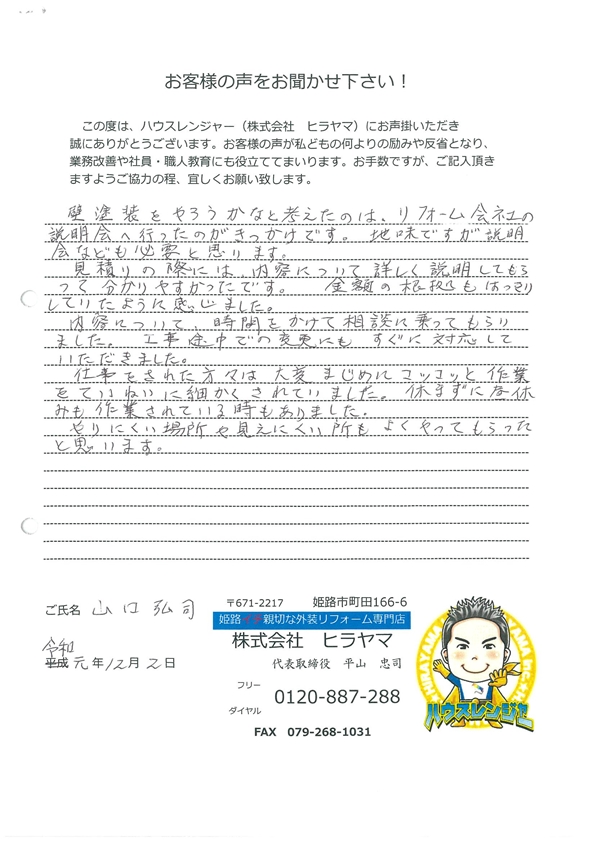 お客様の声をお聞かせ下さい！
この度は、ハウスレンジャー（株式会社　ヒラヤマ）にお声掛いただき
誠にありがとうございます。お客様の声が私どもの何よりの励みや反省となり、
業務改善や社員・職人教育にも役立ててまいります。お手数ですが、ご記入頂き
ますようご協力の程、宜しくお願い致します。
壁塗装をやろうかなと考えたのは、リフォーム会社の
説明会へ行ったのがきっかけです。地味ですが説明
会なども必要と思います。
見積りの際には、内容について詳しく説明してもら
って分かりやすかったです。　金額の根拠もはっきり
していたように感じました。
内容について、時間をかけて相談に乗ってもらい
ました。　工事途中での変更にも すぐに対応して
いただきました。
仕事をされた方々は 大変 まじめに コツコツと 作業
をていねいに細かくされていました。休まずに昼休
みも作業されている時もありました。
やりにくい場所や見えにくい所も よくやってもらった
と思います。
ご氏名　山口 弘司
令和
平成 元年12月2日
〒671-2217　姫路市町田166-6
姫路イチ親切な外装リフォーム専門店
株式会社　ヒラヤマ
代表取締役　平山　忠司
フリー
ダイヤル
0120-887-288
FAX　079-268-1031
ハウスレンジャー